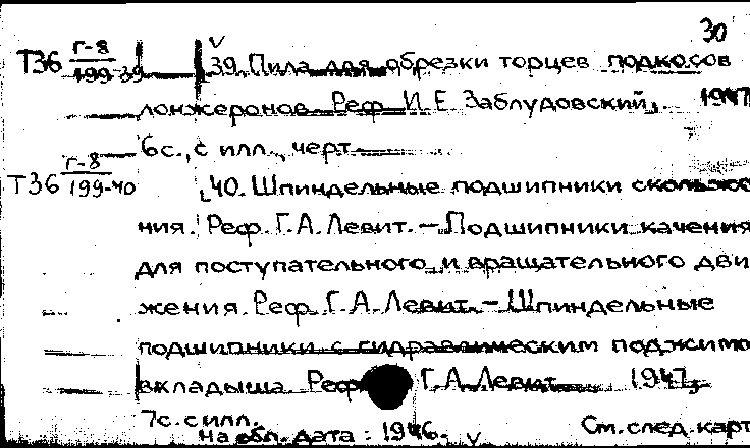 30
Т36 Г-8 V
199-39 39. Пила для обрезки торцев подкосов
лонжеронов. Реф. И.Е. Заблудовский. 1947,
6с., с илл., черт.
Т36 Г-8
199-40 40. Шпиндельные подшипники скольже
ния. Реф. Г.А. Левит. – Подшипники качения
для поступательного и вращательного дви
жения. Реф. Г.А. Левит. – Шпиндельные
подшипники с гидравлическим поджимо
вкладыша. Реф. Г.А. Левит. 1947,
7с. с илл.
На обл. дата: 1946. V См. след. карт